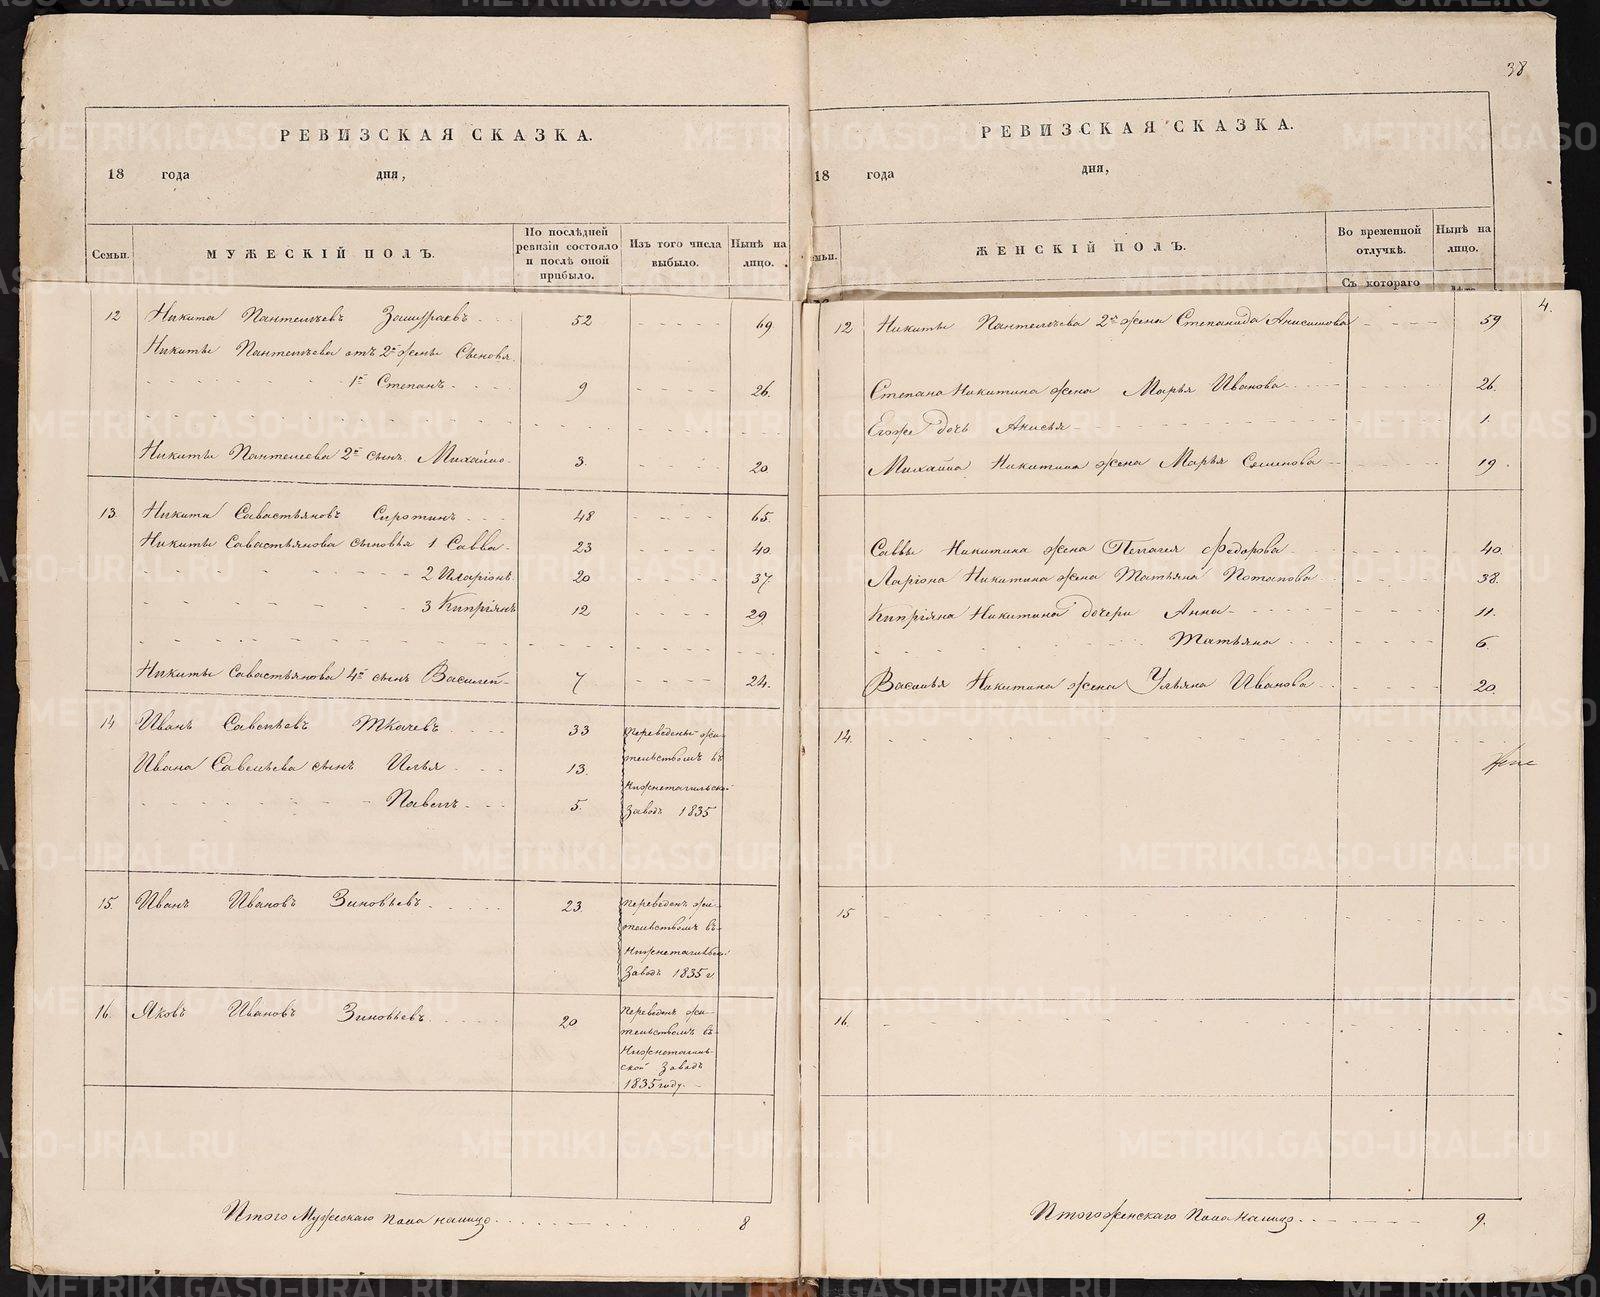 РЕВИЗСКАЯ СКАЗКА.
18 года дня,
Семьи. МУЖЕСКІЙ ПОЛЪ. По послѣдней ревизіи состояло и послѣ оной прибыло. Изъ того числа выбыло. Нынѣ на лицо.
12 Никита Пантелѣевъ 52 69
Никиты Пантелѣева отъ 2й жены Сыновья
1й Степанъ 9 26.
Никиты Пантелеева 2й сынъ Михайло 3. 20
13. Никита Савастьяновъ Сиротинъ 48 65.
Никиты Савастьянова сыновья 1 Савва 23 40.
2 Иларіонъ 20 37
3 Кипріянъ 12 29.
Никиты Савастьянова 4й сынъ Василей 7 24.
14 Иванъ Савельевъ Ткачевъ 33
Ивана Савельева сынъ Илья 13.
Павелъ 5.
Переведены жи-
тельствомъ въ
Нижнетагильской
Заводъ 1835
15. Иванъ Ивановъ Зиновьевъ 23.
Переведенъ жи-
тельствомъ въ
Нижнетагильской
Заводъ 1835 г
16. Яковъ Ивановъ Зиновьевъ 20
Переведенъ жи-
тельствомъ въ
Нижнетагиль-
ской Заводъ
1835 году.
Итого Мужескаго пола налицо 8
38
РЕВИЗСКАЯ СКАЗКА.
18 года дня,
ЖЕНСКІЙ ПОЛЪ. Во временной отлучкѣ. Нынѣ на лицо.
Съ котораго
4.
12 Никиты Пантелѣева 2я жена Степанида Анисимова 59
Степана Никитина жена Марья Иванова 26.
Егоже дочь Анисья 1.
Михайла Никитина жена Марья Семенова 19.
Саввы Никитина жена Пелагея Федорова 40.
Ларіона Никитина жена Татьяна Потапова 38.
Кипріяна Никитина дочери Анна 11.
Татьяна 6.
Василья Никитина жена Ульяна Иванова 20.
14.
15
16.
Итого женскаго пола налицо 9.
METRIKI.GASO-URAL.RU